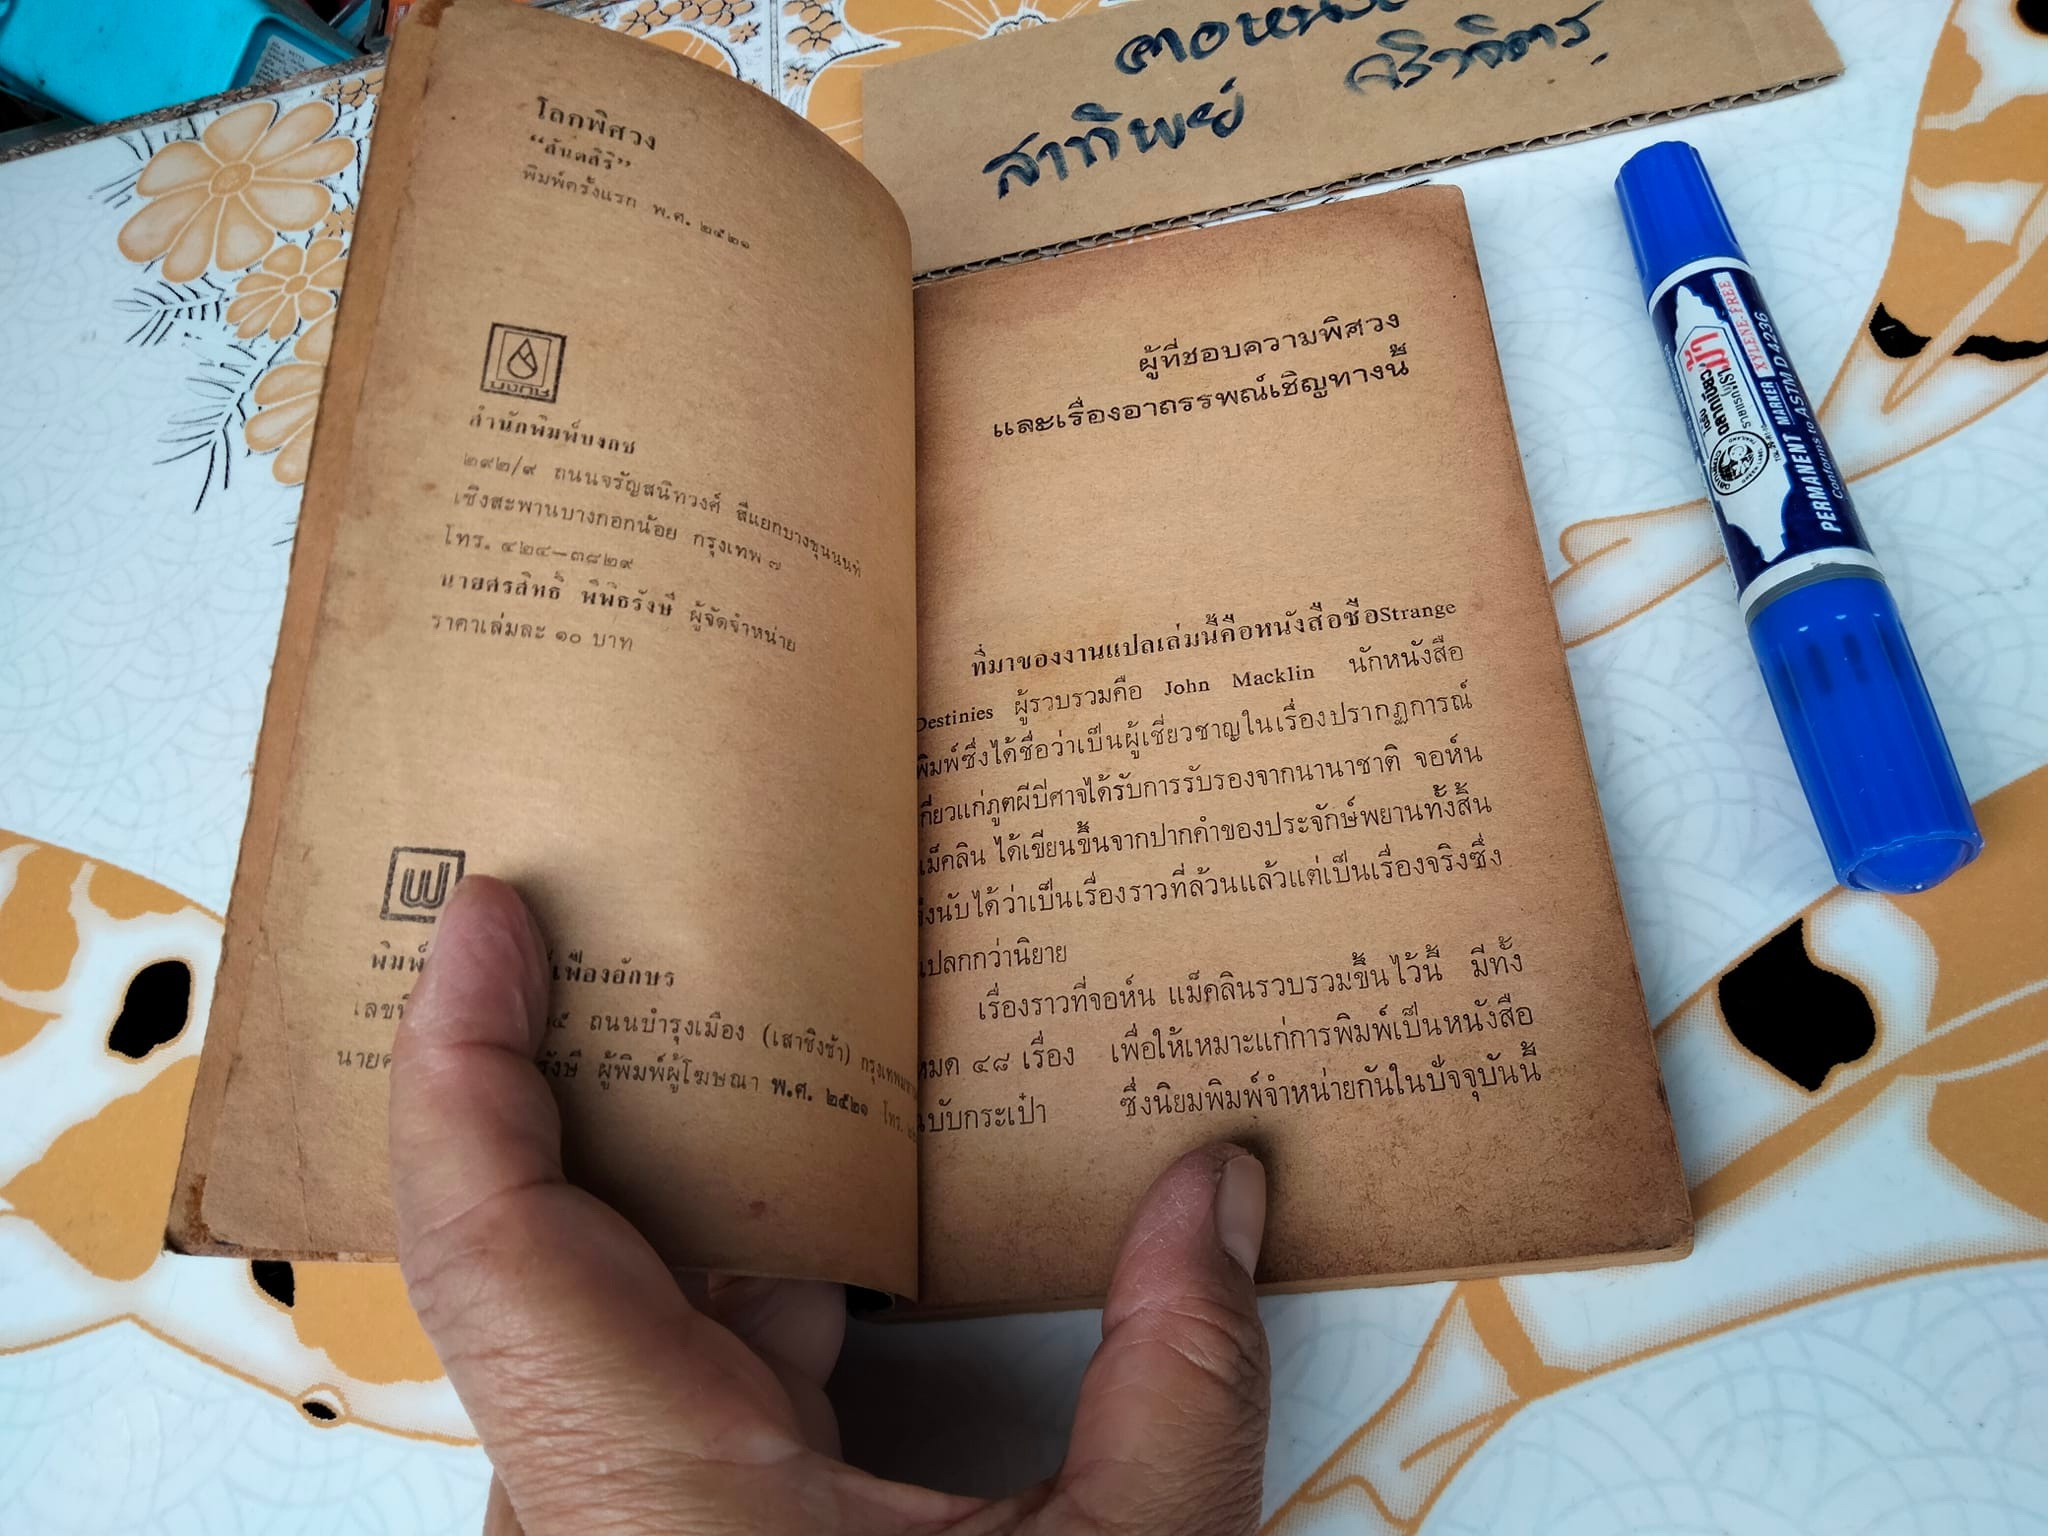 โลกพิศวง
“สันตสิริ”
พิมพ์ครั้งแรก พ.ศ. ๒๕๒๑
บงกช
สำนักพิมพ์บงกช
๒๙๒/๙ ถนนจรัญสนิทวงศ์ สี่แยกบางขุนนนท์
เชิงสะพานบางกอกน้อย กรุงเทพ ๗
โทร. ๔๒๔–๓๘๒๙
นายศรสิทธิ์ พิพิธรังษี ผู้จัดจำหน่าย
ราคาเล่มละ ๑๐ บาท
พิมพ์ เฟื่องอักษร
ถนนบำรุงเมือง (เสาชิงช้า)
รังษี ผู้พิมพ์ผู้โฆษณา พ.ศ. ๒๕๒๑ โทร.
ผู้ที่ชอบความพิศวง
และเรื่องอาถรรพณ์เชิญทางนี้
ที่มาของงานแปลเล่มนี้คือหนังสือชื่อStrange
Destinies ผู้รวบรวมคือ John Macklin นักหนังสือ
พิมพ์ซึ่งได้ชื่อว่าเป็นผู้เชี่ยวชาญในเรื่องปรากฏการณ์
เกี่ยวแก่ภูตผีปีศาจได้รับการรับรองจากนานาชาติ จอห์น
แม็คลิน ได้เขียนขึ้นจากปากคำของประจักษ์พยานทั้งสิ้น
จึงนับได้ว่าเป็นเรื่องราวที่ล้วนแล้วแต่เป็นเรื่องจริงซึ่ง
แปลกกว่านิยาย
เรื่องราวที่จอห์น แม็คลินรวบรวมขึ้นไว้นี้ มีทั้ง
หมด ๔๘ เรื่อง เพื่อให้เหมาะแก่การพิมพ์เป็นหนังสือ
ฉบับกระเป๋า ซึ่งนิยมพิมพ์จำหน่ายกันในปัจจุบันนี้
สาทิพย์
PERMANENT MARKER XYLENE-FREE
Conforms to ASTM D 4236
ม้า